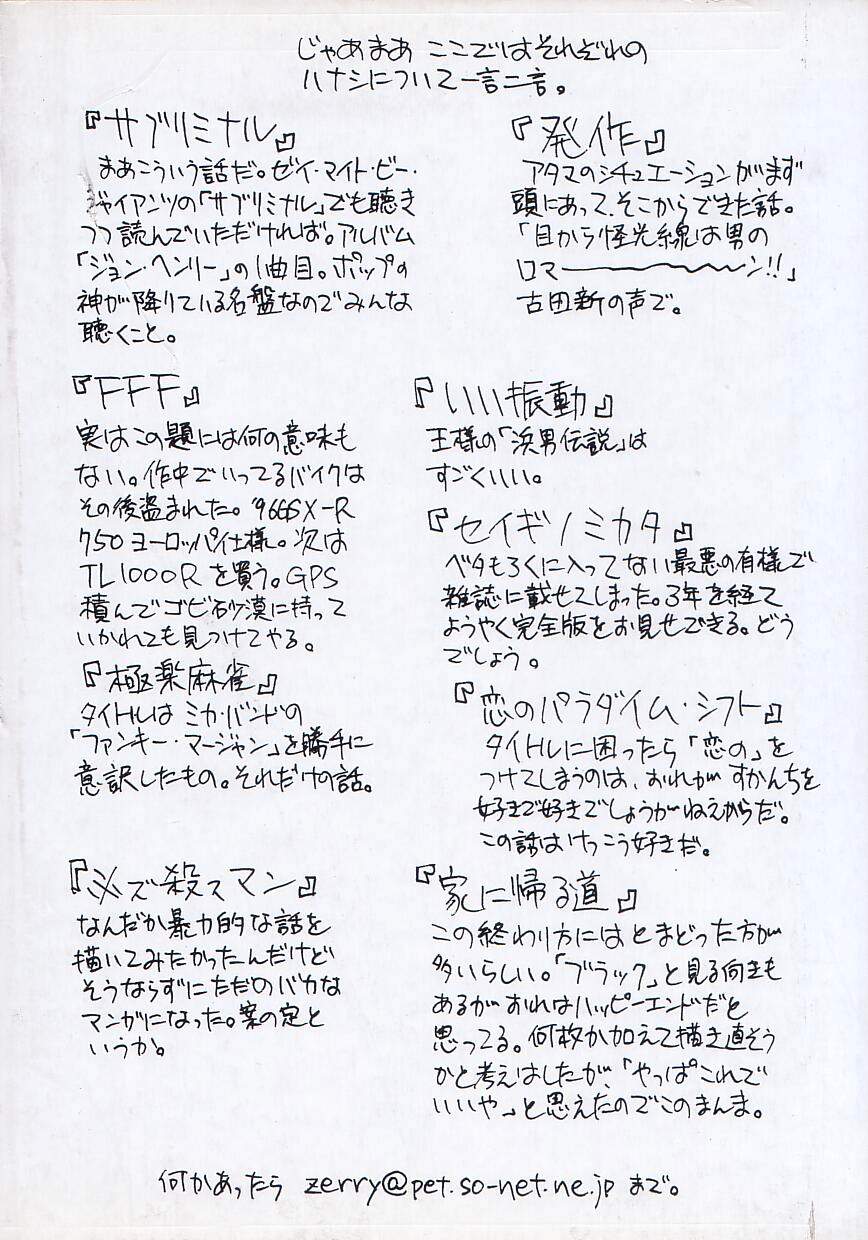 じゃあまあ ここではそれぞれの
ハナシについて一言二言。
『サブリミナル』
まあこういう話だ。ゼイ・マイト・ビー・
ジャイアンツの「サブリミナル」でも聴き
つつ読んでいただければ。アルバム
「ジョン・ヘンリー」の1曲目。ポップの
神が降りている名盤なのでみんな
聴くこと。
『FFF』
実はこの題には何の意味も
ない。作中でいってるバイクは
その後盗まれた。'96GSX-R
750ヨーロッパ仕様。次は
TL1000Rを買う。GPS
積んでゴビ砂漠に持って
いかれても見つけてやる。
『極楽麻雀』
タイトルは ミカ・バンドの
「ファンキー・マージャン」を勝手に
意訳したもの。それだけの話。
『必ズ殺スマン』
なんだか暴力的な話を
描いてみたかったんだけど
そうならずにただのバカな
マンガになった。案の定と
いうか。
『発作』
アタマのシチュエーションがまず
頭にあって、そこからできた話。
「目から怪光線は男の
ロマーーーーーーン!!」
古田新の声で。
『いい振動』
王様の「浜男伝説」は
すごくいい。
『セイギノミカタ』
ベタもろくに入ってない最悪の有様で
雑誌に載せてしまった。3年を経て
ようやく完全版をお見せできる。どう
でしょう。
『恋のパラダイム・シフト』
タイトルに困ったら「恋の」を
つけてしまうのは、おれが すかんちを
好きで好きでしょうがねえからだ。
この話はけっこう好きだ。
『家に帰る道』
この終わり方にはとまどった方が
多いらしい。「ブラック」と見る向きも
あるがおれはハッピーエンドだと
思ってる。何枚か加えて描き直そう
かと考えはしたが、「やっぱこれで
いいや」と思えたのでこのまんま。
何かあったら zerry@pet.so-net.ne.jp まで。